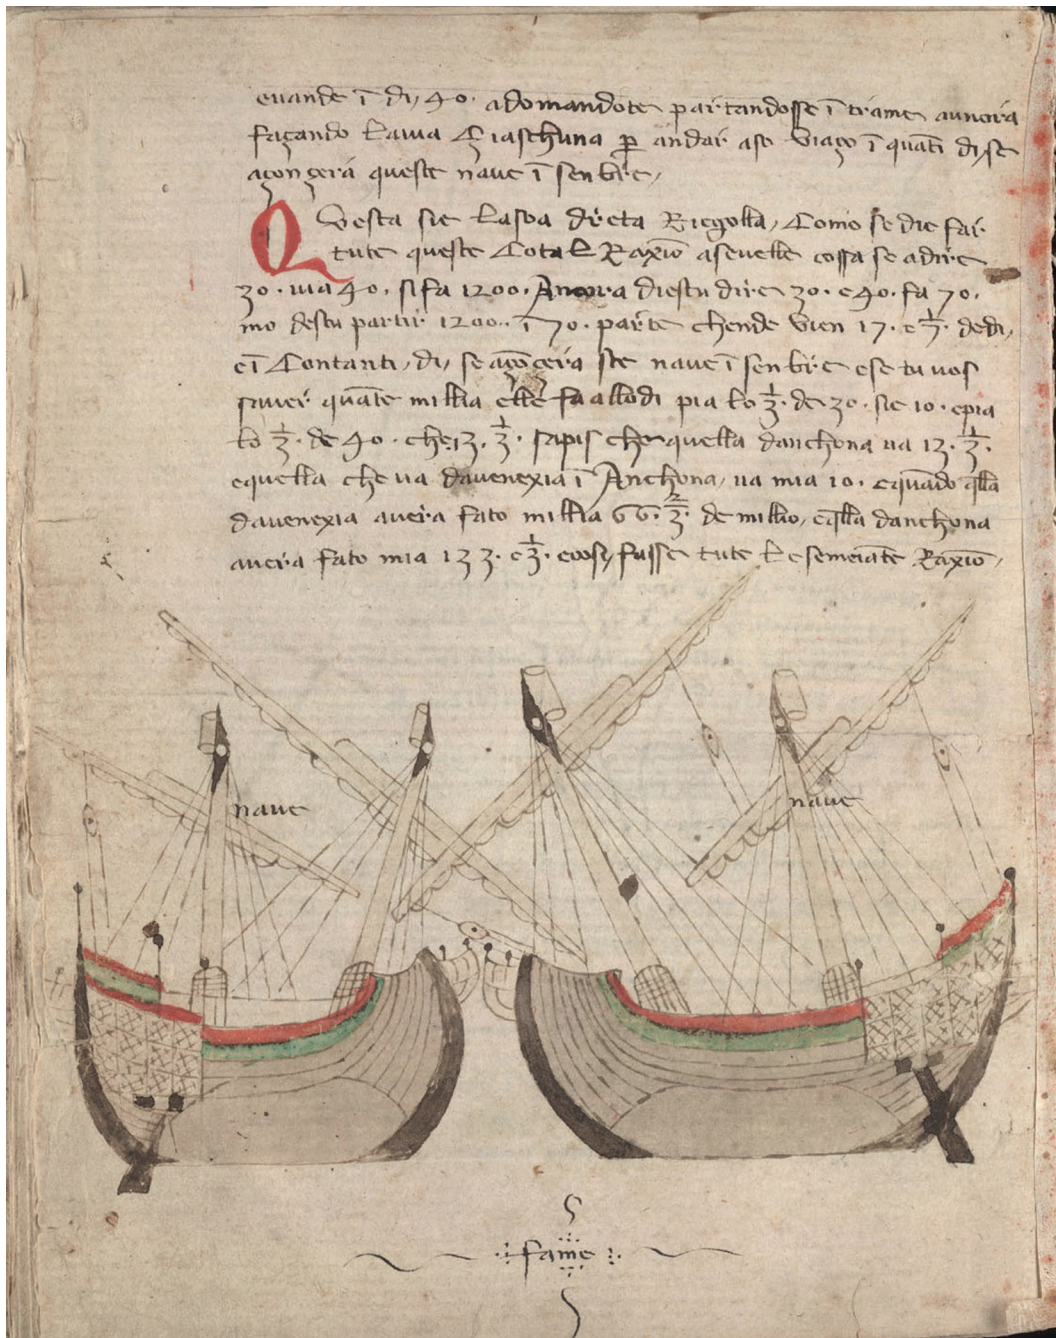 evande ī dı, 40. adomandote partandosse ī trame avnora
façando Lauia Ziaschuna ꝑ andar aso viaço ī quatī dı, se
açonzerà queste nave ī senbre,
Qvesta sie Lasoa dreta Riegolla, Como se die far
tute queste Cotal Raxiō asevelle cossa se adire
30. uia 40. si fa 1200. Ancora diestu dire 30. e 40. fa 70.
mo destu partir 1200. ī 70. parte chende vien 17. e 1/7. dedi,
e ī Contanti, dı, se açōzerà ste nave ī senbre e se tu vos
saver quāte millia elle fa allodi pia lo 1/3. de 30. sie 10. epia
lo 1/3. de 40. che 13. 1/3. sapis che quella danchona ua 13. 1/3.
equella che ua davenexia ī Anchona, ua mia 10. equādo qlla
davenexia avera fato millia 66. 2/3. de millio, e qlla danchona
avera fato mia 133. e 1/3. e cosy fasse tute Le semeiāte Raxiō,
nave
nave
fame